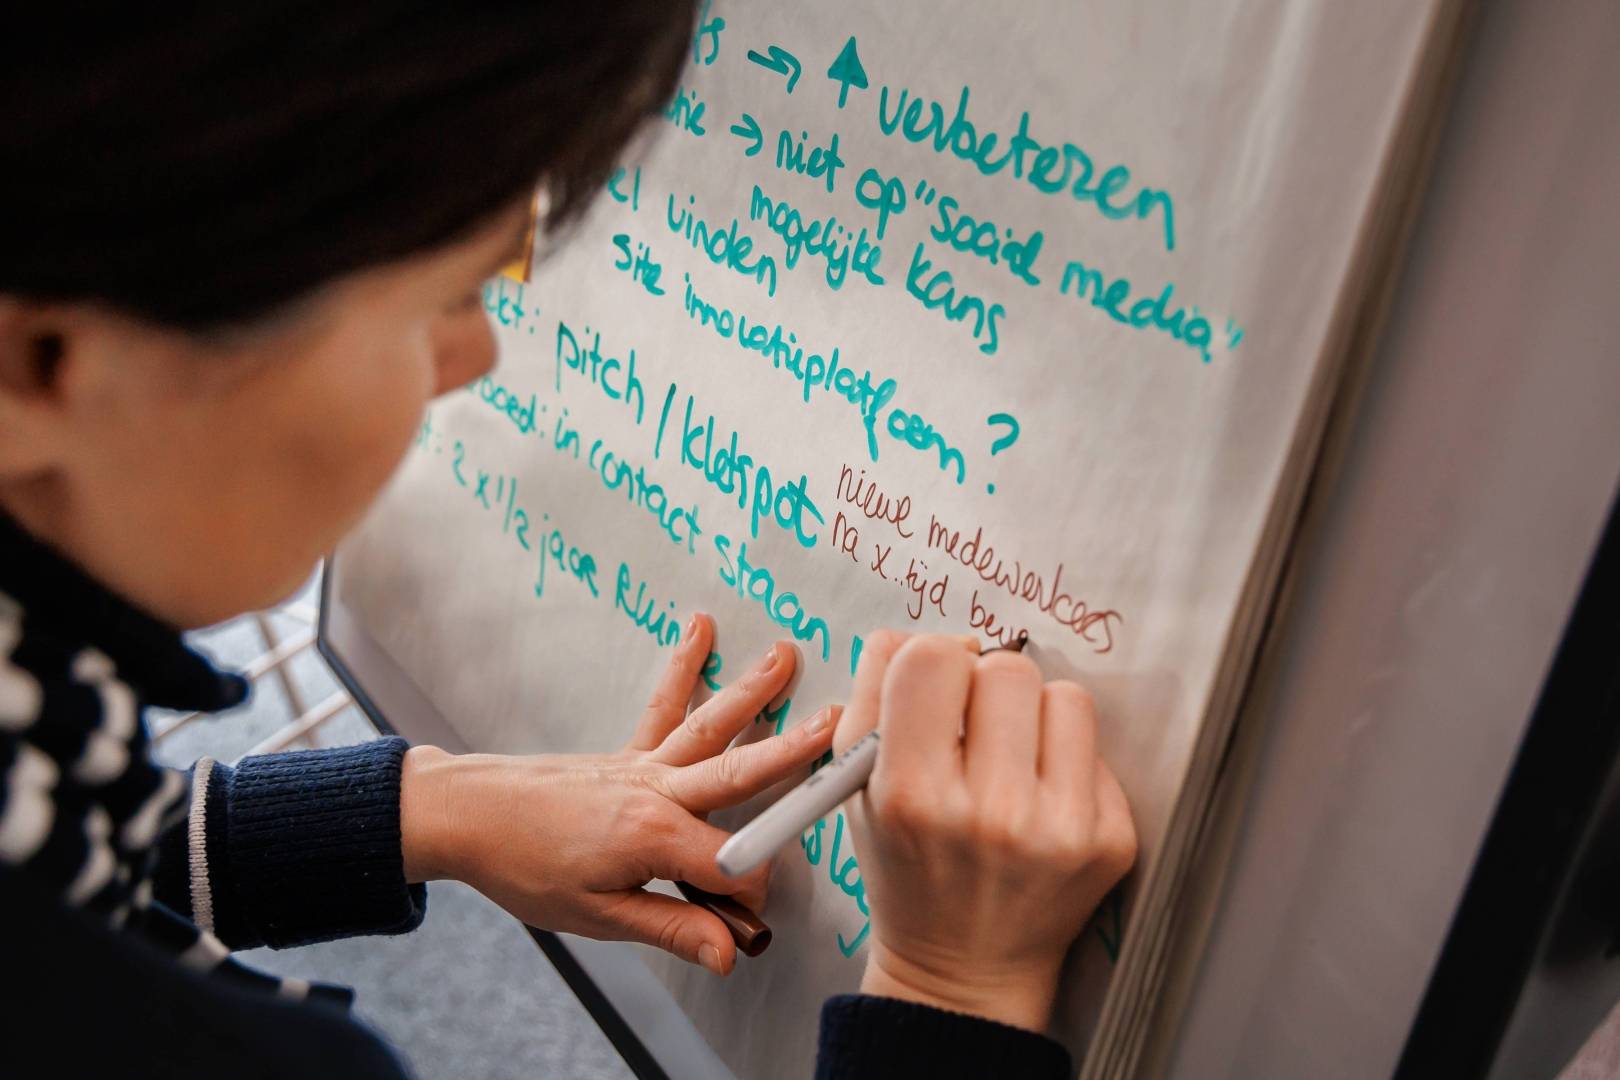 ts → ↑ verbeteren
tie → niet op "sociale media"
el vinden mogelijke kans
site innovatieplatform?
ekt: pitch / kletspot
goed: in contact staan
t: 2 x 1/2 jaar kluin e
nieuwe medewerkers
na x..tijd bev